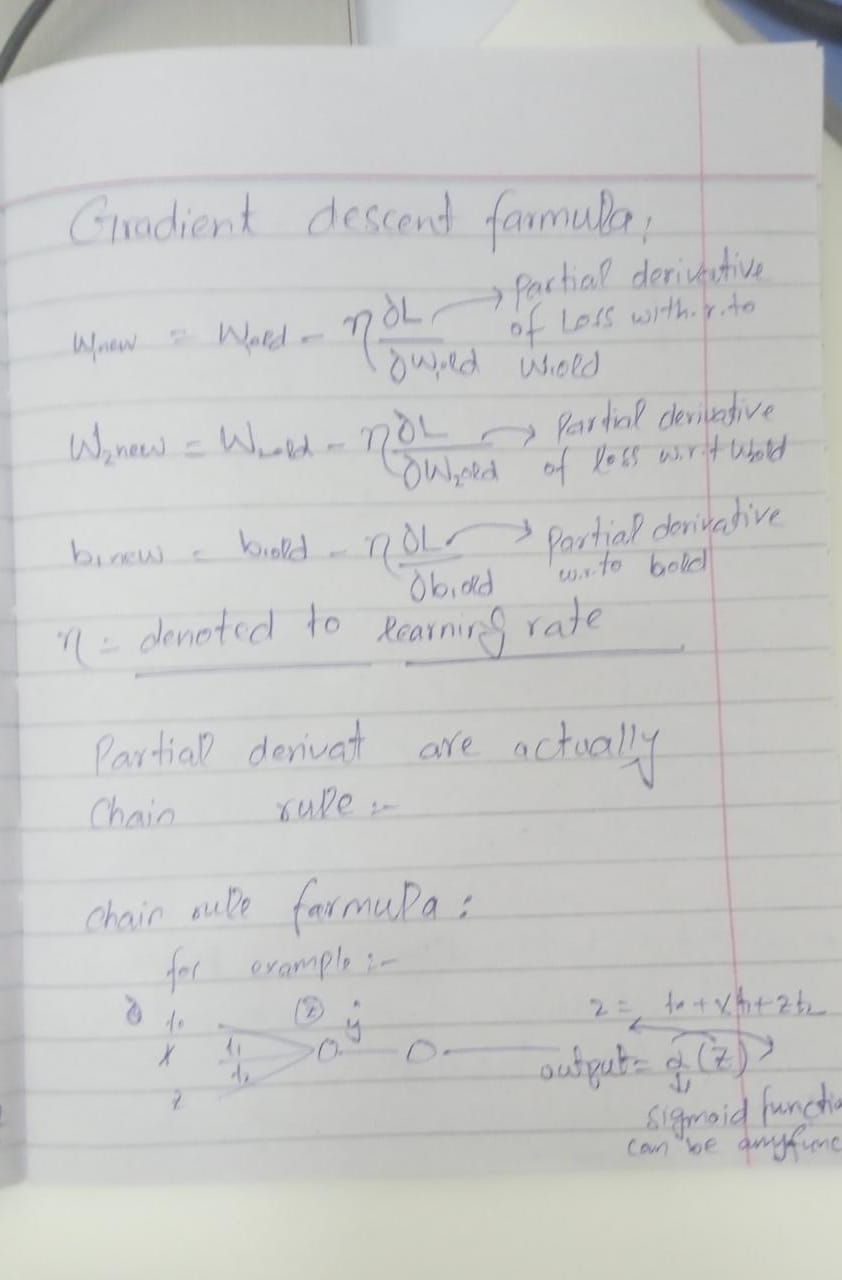 Gradient descent farmula,
W1new = W1old - η ∂L/∂W1old → Partial derivative of Loss with.r.to W1old
W2new = W2old - η ∂L/∂W2old → Partial derivative of loss w.r.t W2old
b1new = b1old - η ∂L/∂b1old → Partial derivative w.r.to bold
η = denoted to learning rate
Partial derivat are actually
Chain rule :-
chain rule farmula :
for example :-
ŷ
output = (z)
sigmoid functio
can be anyfunc